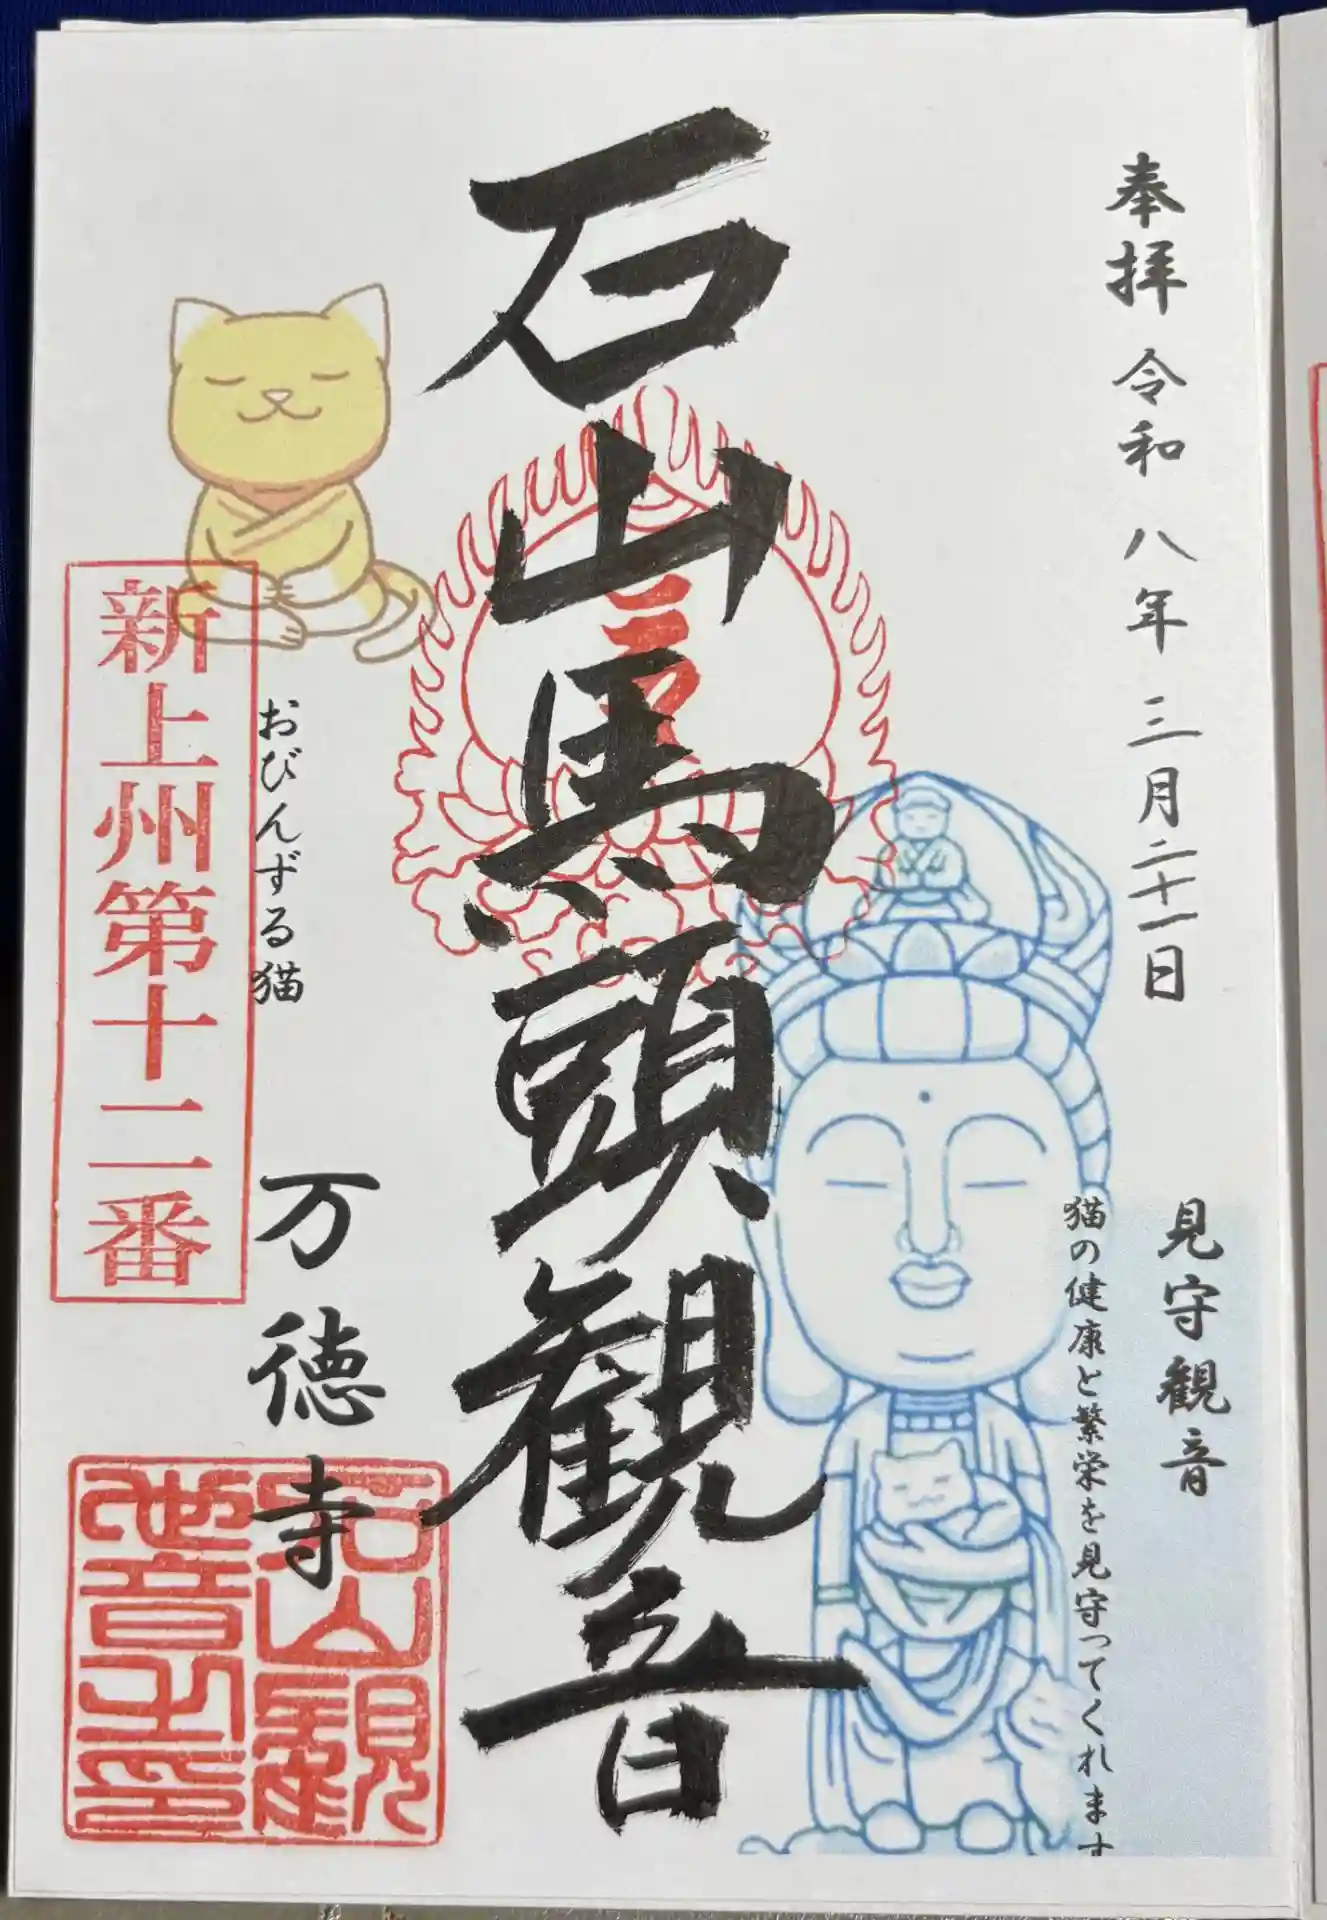 奉拝 令和八年三月二十一日
見守観音
猫の健康と繁栄を見守ってくれます
石山馬頭観音
おびんずる猫
万徳寺
新上州第十二番
石山観
音